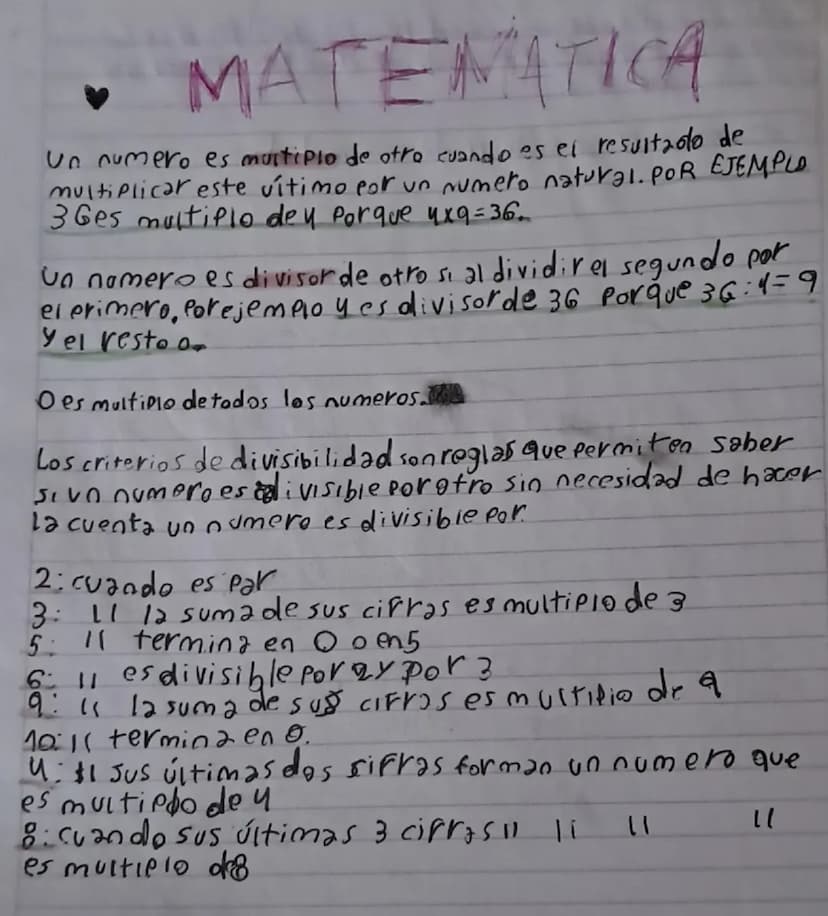 MATEMÁTICA
Un numero es multiplo de otro cuando es el resultado de
multiplicar este último por un numero natural. POR EJEMPLO
36 es multiplo de 4 porque 4x9=36.
Un numero es divisor de otro si al dividir el segundo por
el primero, por ejemplo 4 es divisor de 36 porque 36:4=9
y el resto 0.
0 es multiplo de todos los numeros.
Los criterios de divisibilidad son reglas que permiten saber
si un numero es divisible por otro sin necesidad de hacer
la cuenta un numero es divisible por.
2: cuando es par
3: 11 la suma de sus cifras es multiplo de 3
5: 11 termina en 0 o en 5
6: 11 es divisible por 2 y por 3
9: 11 la suma de sus cifras es multiplo de 9
10: 11 termina en 0.
4: 11 sus últimas dos sifras forman un numero que
es multiplo de 4
8: cuando sus últimas 3 cifras 11 11 11 11
es multiplo de 8